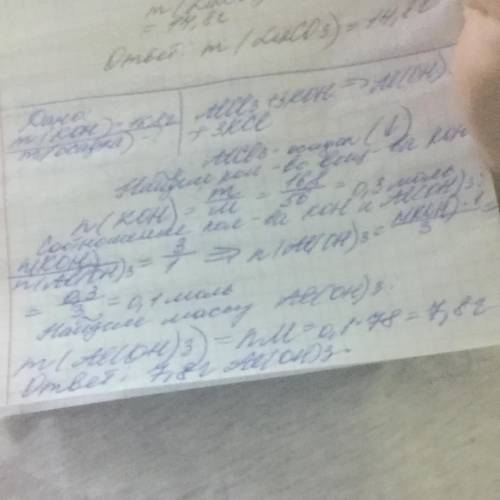 m (Li₂CO₃)
= 14,8г
Ответ: m (Li₂CO₃) = 14,8г
Дано:
m(KOH) = 16,8г
m(осадка) -
AlCl₃ + 3KOH => Al(OH)₃
+ 3KCl
AlCl₃ - осадок (↓)
Найдём кол-во вещ-ва KOH
n(KOH) = m/M = 16,8/56 = 0,3 моль
Соотношение кол-ва KOH и Al(OH)₃:
n(KOH)/n(Al(OH)₃ = 3/1 => n(Al(OH)₃ = n(KOH)·1/3 =
= 0,3/3 = 0,1 моль
Найдём массу Al(OH)₃.
m(Al(OH)₃) = n·M = 0,1·78 = 7,8г
Ответ: 7,8г Al(OH)₃.